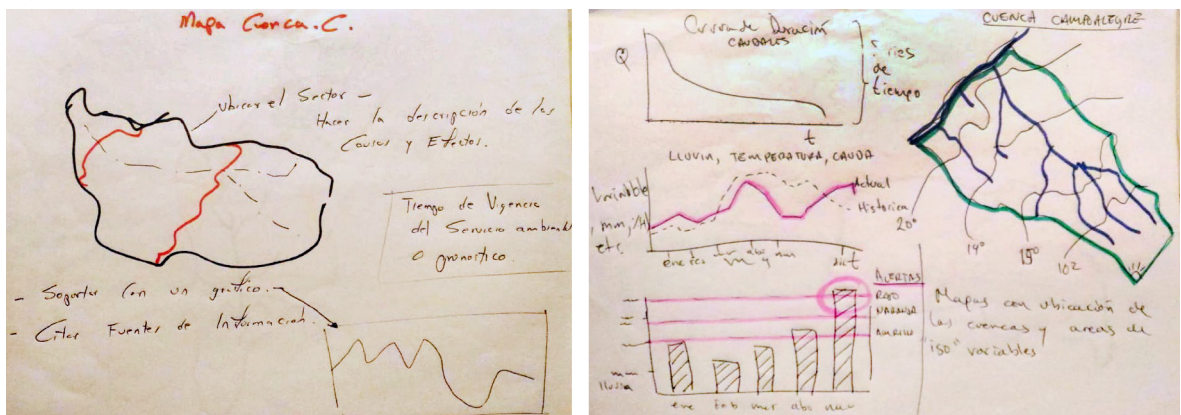 Mapa Cuenca. C.
Ubicar el Sector -
Hacer la descripción de las
Causas y Efectos.
Tiempo de Vigencia
del Servicio ambiental
o pronostico.
- Soportar Con un gráfico.
- Citar Fuentes de Información.
Curva de Duración
CAUDALES
Q
t
Series
de
tiempo
LLUVIA, TEMPERATURA, CAUDA
Variable
, mm, /H
etc
Actual
Historica
ene feb mar abr
dic t
ALERTAS
ROJO
NARANJA
AMARILLO
lluvia
ene feb mar abr may
CUENCA CAMPOALEGRE
20°
19°
15°
10°
Mapas con ubicación de
las cuencas y areas de
"iso" variables